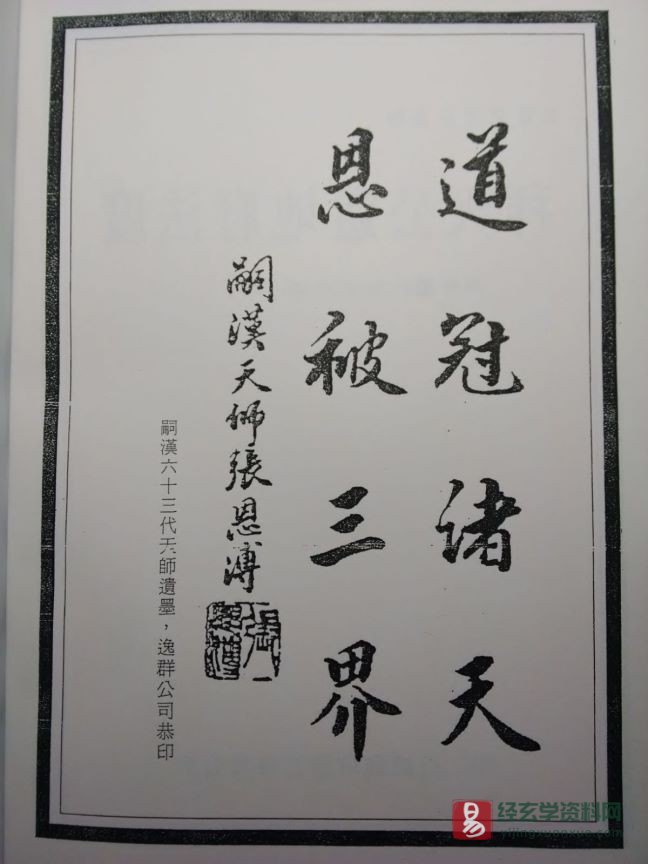 道冠诸天
恩被三界
嗣漢天师張恩溥
嗣漢六十三代天師遺墨，逸群公司恭印
易
经玄学资料网